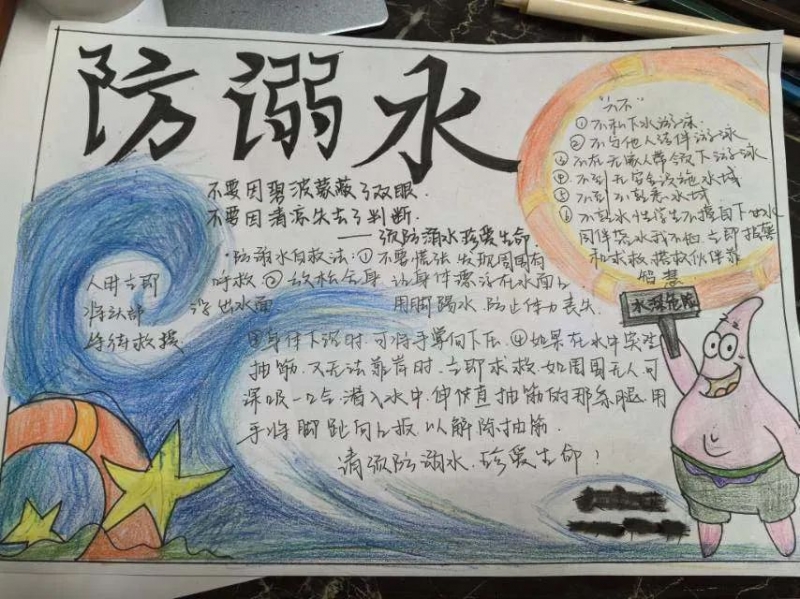 防溺水
不要因碧波蒙蔽了双眼.
不要因清凉失去了判断.
——预防溺水珍爱生命
"六不"
①不私下水游泳
②不与他人结伴游泳
③不在无家人带领下游泳
④不到无安全设施水域
⑤不到不熟悉水域
⑥不熟水性学生不擅自下水
同伴落水我不怕,立即报警
和求救,搭救伙伴靠
智慧
水深危险
防溺水自救法:①不要慌张,发现周围有
人时立即呼救:②放松全身,让身体漂浮在水面上
将头部浮出水面用脚踢水,防止体力丧失
等待救援
③身体下沉时,可将手掌向下压.④如果在水中突发
抽筋,又无法靠岸时,立即求救,如周围无人,可
深吸一口气,潜入水中,伸直抽筋的那条腿,用
手将脚趾向上扳,以解除抽筋.
请预防溺水,珍爱生命!